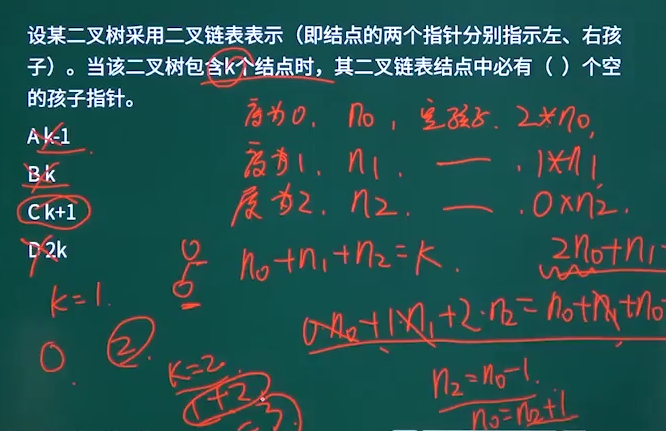 设某二叉树采用二叉链表表示（即结点的两个指针分别指示左、右孩
子）。当该二叉树包含k个结点时，其二叉链表结点中必有（ ）个空
的孩子指针。
A k-1
B k
C k+1
D 2k
度为0. n0, 空孩子. 2*n0,
度为1. n1. — . 1*n1
度为2. n2. — . 0×n2.
n0+n1+n2=K.
2n0+n1
0×n0+1×n1+2·n2=n0+n1+n0
K=1.
0
②.
K=2
1+2
=3
n2=n0-1.
n0=n2+1